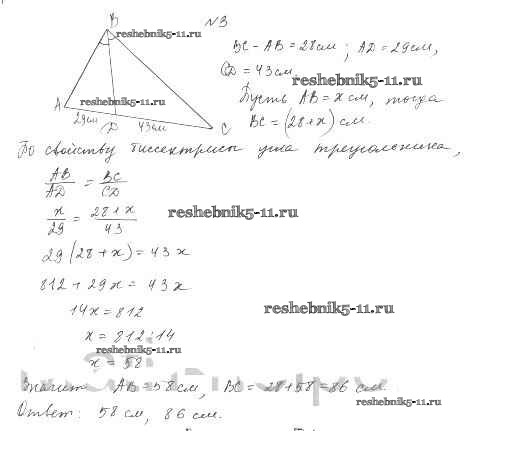 B
№3
reshebnik5-11.ru
BC - AB = 28см; AD = 29см,
CD = 43см.
reshebnik5-11.ru
Пусть AB = x см, тогда
BC = (28+x) см.
A
reshebnik5-11.ru
29см
D
43см
C
По свойству биссектрисы угла треугольника,
AB/AD = BC/CD
x/29 = 28+x/43
reshebnik5-11.ru
29(28+x) = 43x
812 + 29x = 43x
14x = 812
reshebnik5-11.ru
x = 812:14
reshebnik5-11.ru
x = 58
Значит AB = 58см, BC = 28+58 = 86 см.
reshebnik5-11.ru
Ответ: 58 см, 86 см.